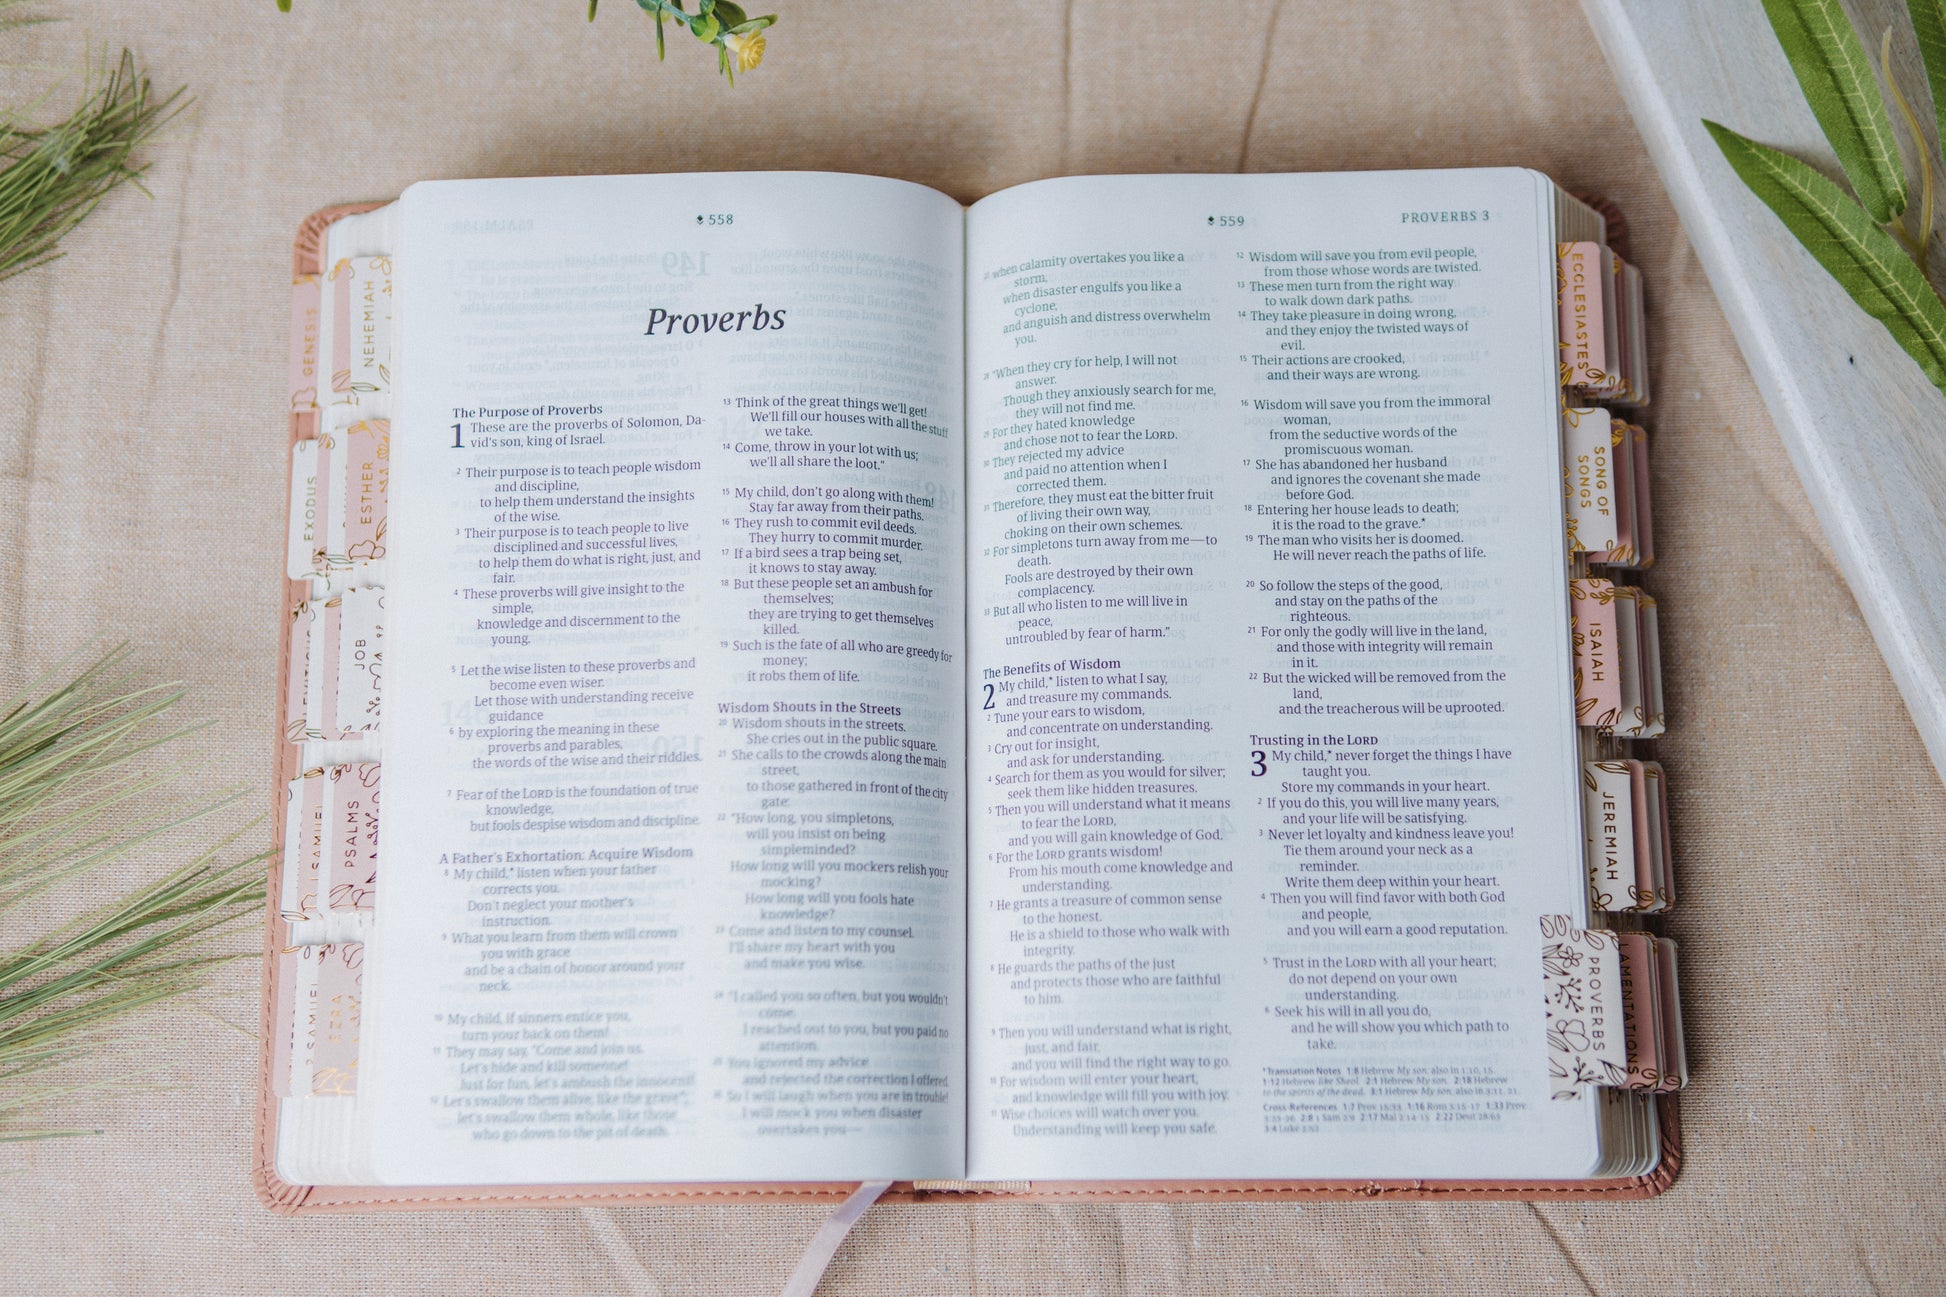 558
Proverbs
The Purpose of Proverbs
1 These are the proverbs of Solomon, Da-
vid's son, king of Israel.
2 Their purpose is to teach people wisdom
and discipline,
to help them understand the insights
of the wise.
3 Their purpose is to teach people to live
disciplined and successful lives,
to help them do what is right, just, and
fair.
4 These proverbs will give insight to the
simple,
knowledge and discernment to the
young.
5 Let the wise listen to these proverbs and
become even wiser.
Let those with understanding receive
guidance
6 by exploring the meaning in these
proverbs and parables,
the words of the wise and their riddles.
7 Fear of the LORD is the foundation of true
knowledge,
but fools despise wisdom and discipline.
A Father's Exhortation: Acquire Wisdom
8 My child,* listen when your father
corrects you.
Don't neglect your mother's
instruction.
9 What you learn from them will crown
you with grace
and be a chain of honor around your
neck.
10 My child, if sinners entice you,
turn your back on them!
11 They may say, "Come and join us.
Let's hide and kill someone!
Just for fun, let's ambush the innocent!
12 Let's swallow them alive, like the grave*;
let's swallow them whole, like those
who go down to the pit of death.
13 Think of the great things we'll get!
We'll fill our houses with all the stuff
we take.
14 Come, throw in your lot with us;
we'll all share the loot."
15 My child, don't go along with them!
Stay far away from their paths.
16 They rush to commit evil deeds.
They hurry to commit murder.
17 If a bird sees a trap being set,
it knows to stay away.
18 But these people set an ambush for
themselves;
they are trying to get themselves
killed.
19 Such is the fate of all who are greedy for
money;
it robs them of life.
Wisdom Shouts in the Streets
20 Wisdom shouts in the streets.
She cries out in the public square.
21 She calls to the crowds along the main
street,
to those gathered in front of the city
gate:
22 "How long, you simpletons,
will you insist on being
simpleminded?
How long will you mockers relish your
mocking?
How long will you fools hate
knowledge?
23 Come and listen to my counsel.
I'll share my heart with you
and make you wise.
24 "I called you so often, but you wouldn't
come.
I reached out to you, but you paid no
attention.
25 You ignored my advice
and rejected the correction I offered.
26 So I will laugh when you are in trouble!
I will mock you when disaster
overtakes you—
559
PROVERBS 3
27 when calamity overtakes you like a
storm,
when disaster engulfs you like a
cyclone,
and anguish and distress overwhelm
you.
28 "When they cry for help, I will not
answer.
Though they anxiously search for me,
they will not find me.
29 For they hated knowledge
and chose not to fear the LORD.
30 They rejected my advice
and paid no attention when I
corrected them.
31 Therefore, they must eat the bitter fruit
of living their own way,
choking on their own schemes.
32 For simpletons turn away from me—to
death.
Fools are destroyed by their own
complacency.
33 But all who listen to me will live in
peace,
untroubled by fear of harm."
The Benefits of Wisdom
2 My child,* listen to what I say,
and treasure my commands.
2 Tune your ears to wisdom,
and concentrate on understanding.
3 Cry out for insight,
and ask for understanding.
4 Search for them as you would for silver;
seek them like hidden treasures.
5 Then you will understand what it means
to fear the LORD,
and you will gain knowledge of God.
6 For the LORD grants wisdom!
From his mouth come knowledge and
understanding.
7 He grants a treasure of common sense
to the honest.
He is a shield to those who walk with
integrity.
8 He guards the paths of the just
and protects those who are faithful
to him.
9 Then you will understand what is right,
just, and fair,
and you will find the right way to go.
10 For wisdom will enter your heart,
and knowledge will fill you with joy.
11 Wise choices will watch over you.
Understanding will keep you safe.
12 Wisdom will save you from evil people,
from those whose words are twisted.
13 These men turn from the right way
to walk down dark paths.
14 They take pleasure in doing wrong,
and they enjoy the twisted ways of
evil.
15 Their actions are crooked,
and their ways are wrong.
16 Wisdom will save you from the immoral
woman,
from the seductive words of the
promiscuous woman.
17 She has abandoned her husband
and ignores the covenant she made
before God.
18 Entering her house leads to death;
it is the road to the grave.*
19 The man who visits her is doomed.
He will never reach the paths of life.
20 So follow the steps of the good,
and stay on the paths of the
righteous.
21 For only the godly will live in the land,
and those with integrity will remain
in it.
22 But the wicked will be removed from the
land,
and the treacherous will be uprooted.
Trusting in the LORD
3 My child,* never forget the things I have
taught you.
Store my commands in your heart.
2 If you do this, you will live many years,
and your life will be satisfying.
3 Never let loyalty and kindness leave you!
Tie them around your neck as a
reminder.
Write them deep within your heart.
4 Then you will find favor with both God
and people,
and you will earn a good reputation.
5 Trust in the LORD with all your heart;
do not depend on your own
understanding.
6 Seek his will in all you do,
and he will show you which path to
take.
*Translation Notes 1:8 Hebrew My son; also in 1:10, 15.
1:12 Hebrew like Sheol. 2:1 Hebrew My son. 2:18 Hebrew
to the spirits of the dead. 3:1 Hebrew My son; also in 3:11, 21.
Cross-References 1:7 Prov 1:16 Rom 3:15-17 1:33 Prov
2:17 Mal 2:14-15 2:22 Deut 28:63
3:4 Luke 2:52
GENESIS
NEHEMIAH
EXODUS
ESTHER
JOB
1 SAMUEL
PSALMS
2 SAMUEL
EZRA
ECCLESIASTES
SONG OF
SONGS
ISAIAH
JEREMIAH
PROVERBS
LAMENTATIONS